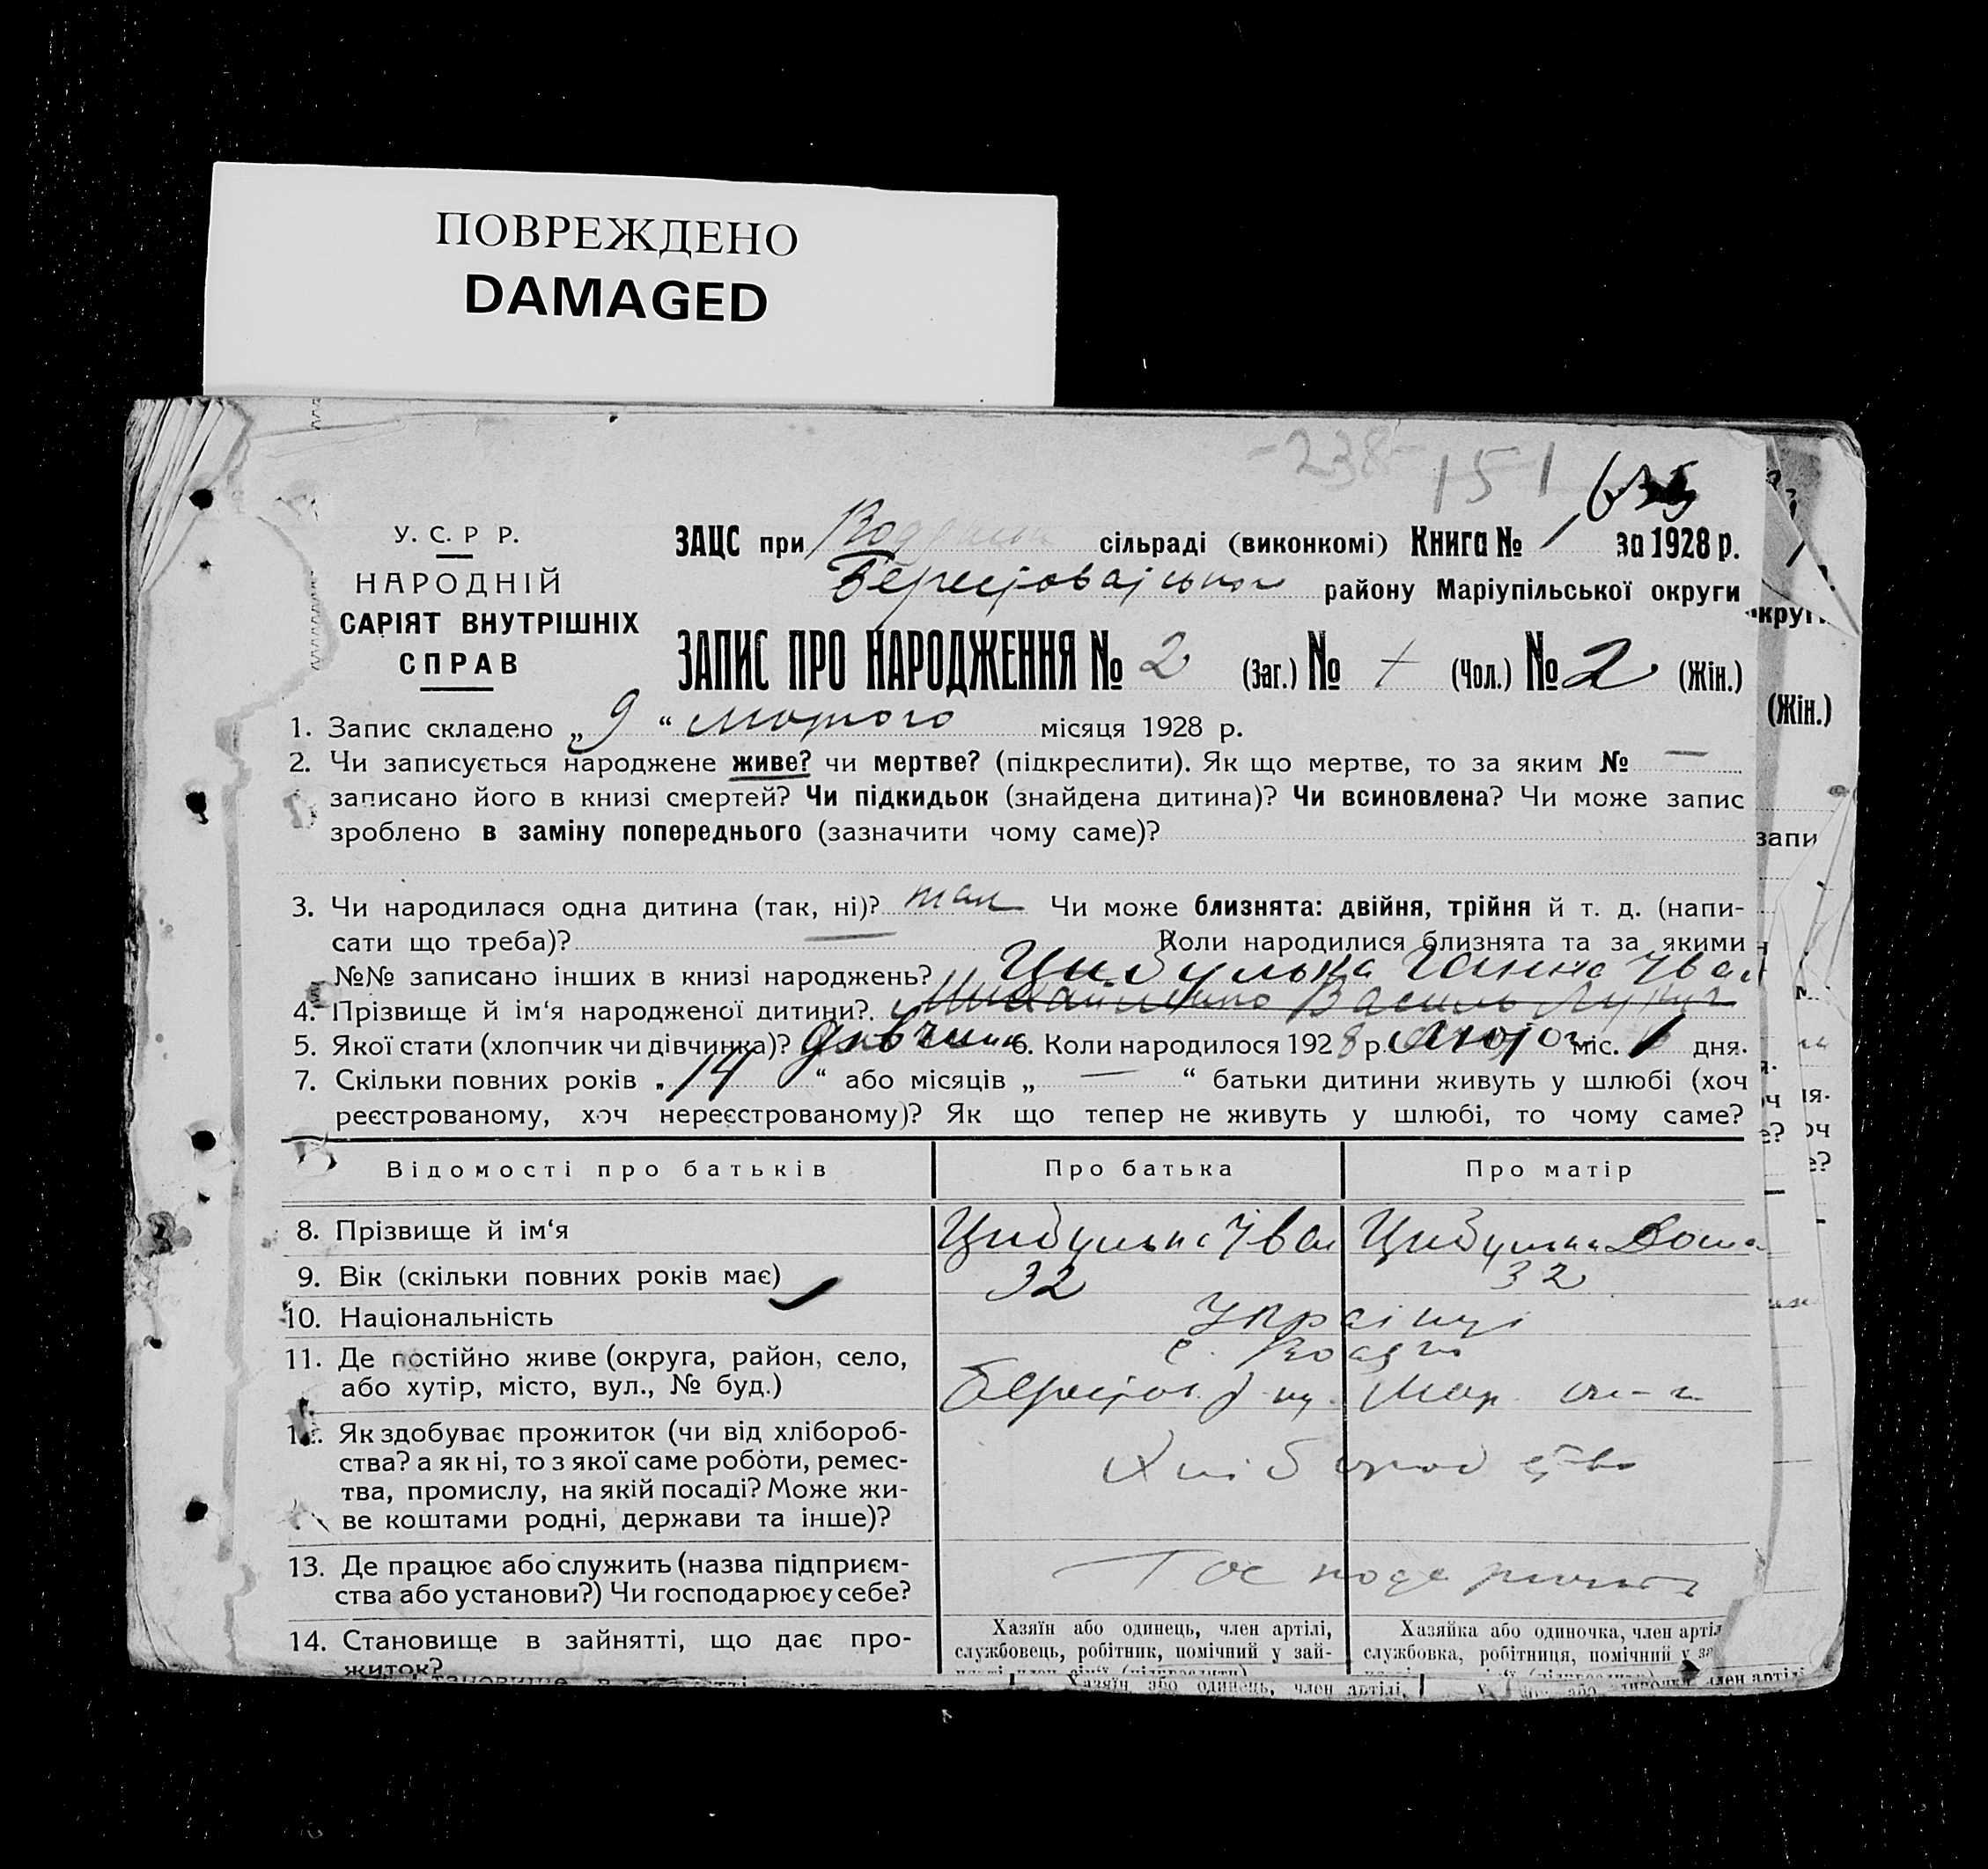 ПОВРЕЖДЕНО
DAMAGED
-238-
151
У. С. Р Р.
НАРОДНІЙ
САРІЯТ ВНУТРІШНІХ
СПРАВ
ЗАЦС при сільраді (виконкомі) Книга № 1 за 1928 р.
району Маріупільської округи
ЗАПИС ПРО НАРОДЖЕННЯ № 2 (Заг.) № + (Чол.) № 2 (Жін.)
1. Запис складено „ 9 “ лютого місяця 1928 р.
2. Чи записується народжене живе? чи мертве? (підкреслити). Як що мертве, то за яким № —
записано його в книзі смертей? Чи підкидьок (знайдена дитина)? Чи всиновлена? Чи може запис
зроблено в заміну попереднього (зазначити чому саме)?
3. Чи народилася одна дитина (так, ні)? так Чи може близнята: двійня, трійня й т. д. (напи-
сати що треба)? — Коли народилися близнята та за якими
№№ записано інших в книзі народжень? Цибулька Ганна Іван
4. Прізвище й ім‘я народженої дитини? Василь
5. Якої стати (хлопчик чи дівчинка)? дівчина 6. Коли народилося 1928 р. лютого міс. 1 дня.
7. Скільки повних років „ 14 “ або місяців „ — “ батьки дитини живуть у шлюбі (хоч
реєстрованому, хоч нереєстрованому)? Як що тепер не живуть у шлюбі, то чому саме?
Відомості про батьків Про батька Про матір
8. Прізвище й ім‘я Цибулька Іван Цибулька
9. Вік (скільки повних років має) 32 32
10. Національність Українці
11. Де постійно живе (округа, район, село,
або хутір, місто, вул., № буд.)
12. Як здобуває прожиток (чи від хлібороб-
ства? а як ні, то з якої саме роботи, ремес-
тва, промислу, на якій посаді? Може жи-
ве коштами родні, держави та інше)?
Хліборобство
13. Де працює або служить (назва підприєм-
ства або установи?) Чи господарює у себе?
14. Становище в зайнятті, що дає про-
житок?
Хазяїн або одинець, член артілі,
службовець, робітник, помічний у зай-
Хазяйка або одиночка, член артіл
службовка, робітниця, помічний у за
округи
(Жін.)
запи
Хазяїн або одинець, член артілі,